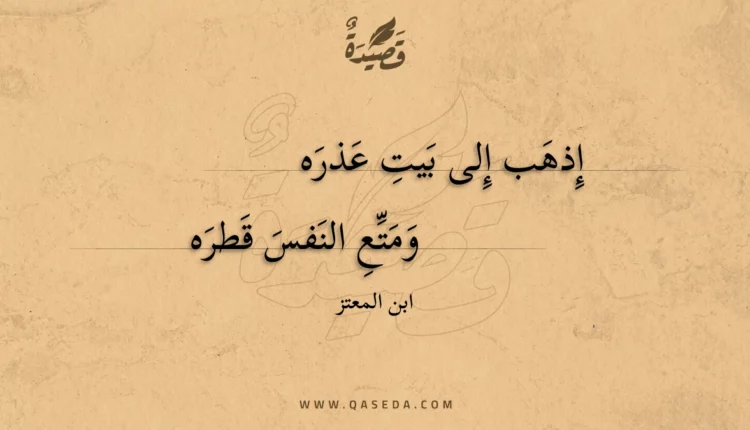 قَصِيْدَةٌ
إِذهَب إِلى بَيتِ عَذرَه
وَمَتِّعِ النَفسَ قَطرَه
ابن المعتز
WWW.QASEDA.COM